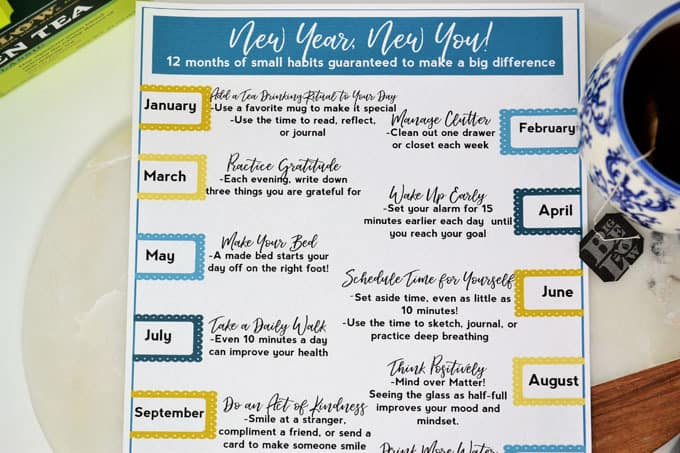 LOW
EN TEA
New Year, New You!
12 months of small habits guaranteed to make a big difference
January
Add a Tea Drinking Ritual to Your Day
-Use a favorite mug to make it special
-Use the time to read, reflect,
or journal
February
Manage Clutter
-Clean out one drawer
or closet each week
March
Practice Gratitude
-Each evening, write down
three things you are grateful for
April
Wake Up Early
-Set your alarm for 15
minutes earlier each day until
you reach your goal
May
Make Your Bed
-A made bed starts your
day off on the right foot!
June
Schedule Time for Yourself
-Set aside time, even as little as
10 minutes!
-Use the time to sketch, journal, or
practice deep breathing
July
Take a Daily Walk
-Even 10 minutes a day
can improve your health
August
Think Positively
-Mind over Matter!
Seeing the glass as half-full
improves your mood and
mindset.
September
Do an Act of Kindness
-Smile at a stranger,
compliment a friend, or send a
card to make someone smile
Drink More Water
BIGELOW